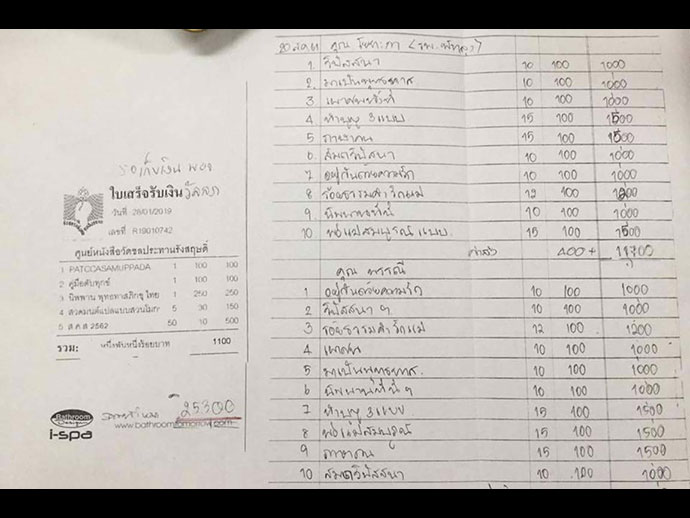 ใบเสร็จรับเงิน
วันที่ 28/01/2019
เลขที่ R19010742
ศูนย์หนังสือวัดชลประทานรังสฤษดิ์
1 PATCCASAMUPPADA 1 100 100
2 คู่มือดับทุกข์ 1 100 100
3 นิพพาน พุทธทาสภิกขุ ไทย 1 250 250
4 สวดมนต์แปลแบบสวนโมก 5 30 150
5 ส.ค.ส 2562 50 10 500
รวม: หนึ่งพันหนึ่งร้อยบาท 1100
25300
Bathroom Design
i-spa
www.bathroomtomorrow.com
คุณ
1 วิปัสสนา 10 100 1000
2 10 100 1000
3 10 100 1000
4 ทำบุญ 3 แบบ 15 100 1500
5 15 100 1500
6 10 100 1000
7 อยู่กันด้วยความรัก 10 100 1000
8 ร้อยธรรมคำรักแม่ 12 100 1200
9 10 100 1000
10 พ่อแม่สมบูรณ์แบบ 15 100 1500
ค่าส่ง 400 + 11700
คุณ
1 อยู่กันด้วยความรัก 10 100 1000
2 วิปัสสนา ฯ 10 100 1000
3 ร้อยธรรมคำรักแม่ 12 100 1200
4 10 100 1000
5 10 100 1000
6 10 100 1000
7 ทำบุญ 3 แบบ 15 100 1500
8 พ่อแม่สมบูรณ์ 15 100 1500
9 15 100 1500
10 10 100 1000